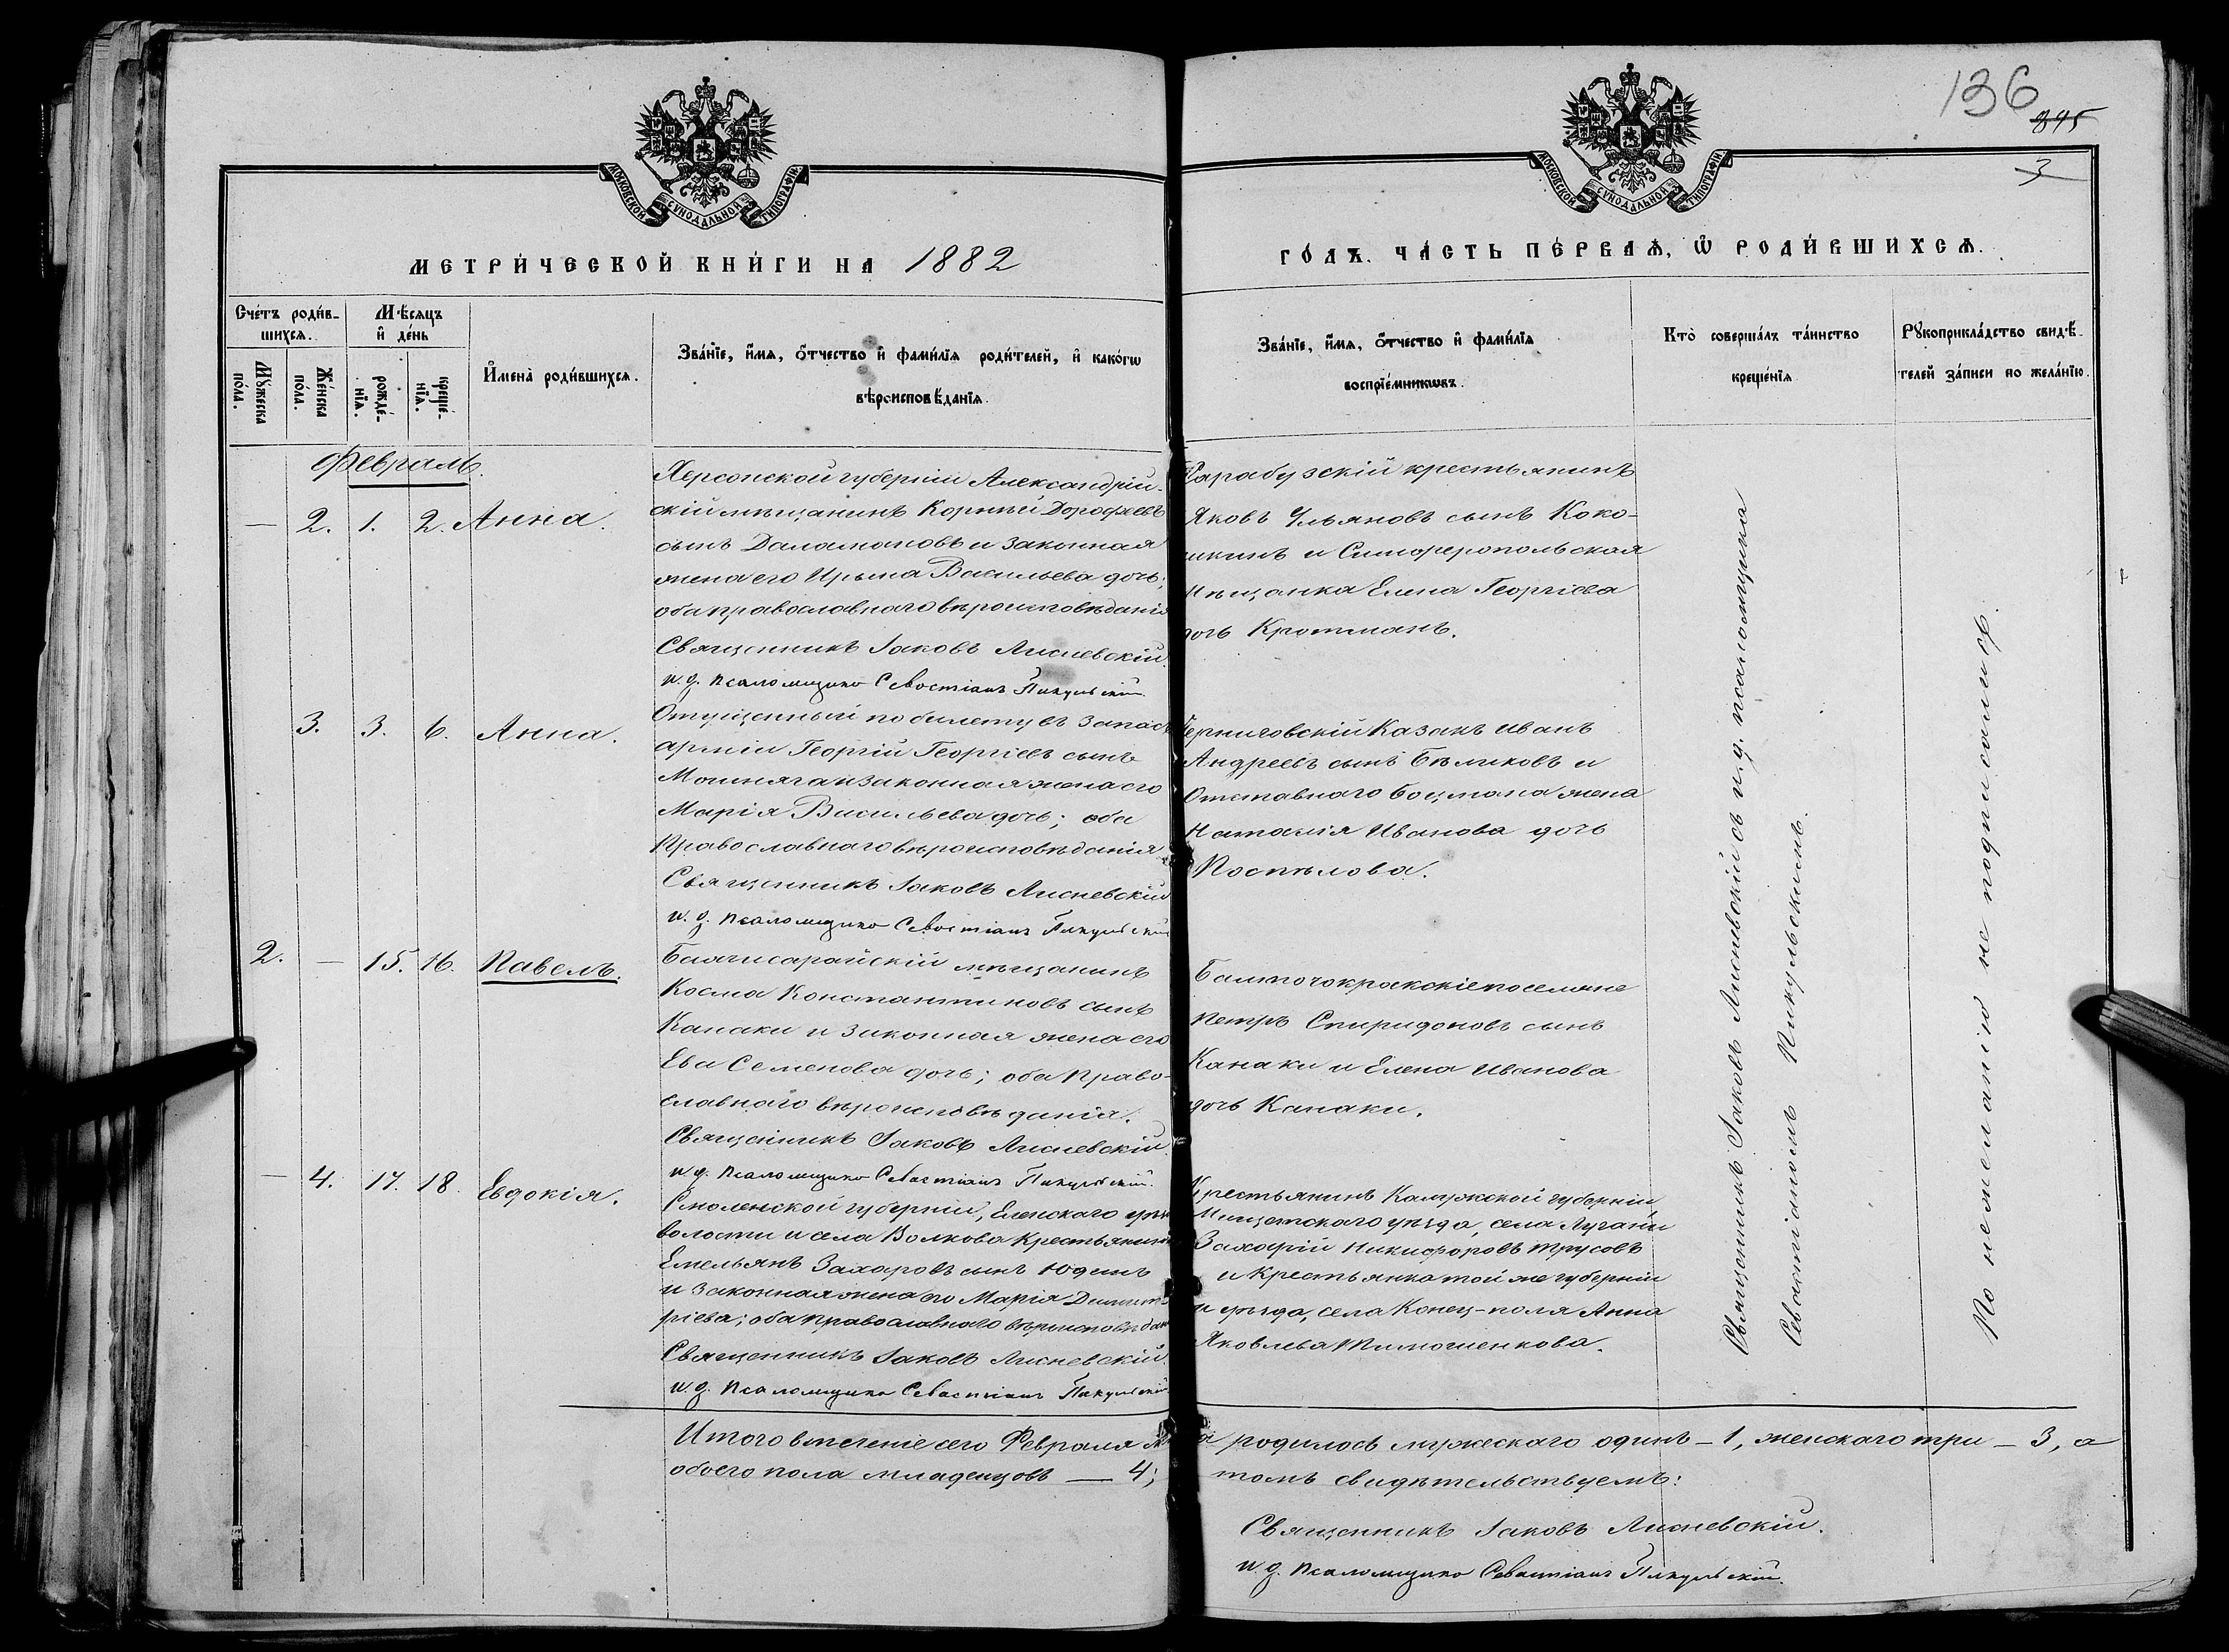 136
845
3
МОСКОВСКОЙ СУНОДАЛЬНОЙ ТИПОГРАФІИ
МОСКОВСКОЙ СУНОДАЛЬНОЙ ТИПОГРАФІИ
МЕТРИ́ЧЕСКОЙ КНИ́ГИ НА 1882
ГО́ДЪ. ЧА́СТЬ ПЕ́РВАѦ, Ѿ РОДИ́ВШИХСѦ.
Сче́тъ роди́в-
шихсѧ.
Мꙋ́жеска
по́ла.
Же́нска
по́ла.
Мѣ́сѧцъ
и҆ де́нь
рожде́-
нїѧ.
креще́-
нїѧ.
И҆мена̀ роди́вшихсѧ.
Зва́нїе, и҆́мѧ, ѻ҆́тчество и҆ фами́лїѧ роди́телей, и҆ како́гѡ
вѣроисповѣ́данїѧ.
Зва́нїе, и҆́мѧ, ѻ҆́тчество и҆ фами́лїѧ
воспрїе́мникωвъ.
Кто̀ соверша́лъ та́инство
креще́нїѧ
Рꙋкоприкла́дство свидѣ́-
телей за́писи по жела́нїю.
Февраль.
— 2. 1. 2. Анна.
Херсонской губерніи Александрій-
скій мѣщанинъ Корнѣй Дорофеевъ
сынъ Даламановъ и законная
жена его Ирина Васильева дочь;
оба православнаго вѣроисповѣданія
Священникъ Іаковъ Лисневскій.
и. д. псаломщика Севастіанъ Пикульскій.
Карабузскій крестьянинъ
Яковъ Ульяновъ сынъ Коко-
шкинъ и Симферопольская
мѣщанка Елена Георгіева
дочь Кротманъ.
3. 3. 6. Анна.
Отпущенный по билету въ запасъ
арміи Георгій Георгіевъ сынъ
Мошняга и законная жена его
Марія Васильева дочь; оба
Православнаго вѣроисповѣданія.
Священникъ Іаковъ Лисневскій
и. д. псаломщика Севастіанъ Пикульскій
Черниговскій Казакъ Иванъ
Андреевъ сынъ Бѣликовъ и
Отставнаго боцмана жена
Наталія Иванова дочь
Поспѣлова.
2. — 15. 16. Павелъ.
Бахчисарайскій мѣщанинъ
Косма Константиновъ сынъ
Канаки и законная жена его
Ева Семенова дочь; оба Право-
славнаго вѣроисповѣданія.
Священникъ Іаковъ Лисневскій.
и. д. псаломщика Севастіанъ Пикульскій.
Балточокракскіе поселяне
Петръ Спиридоновъ сынъ
Канаки и Елена Иванова
дочь Канаки.
— 4. 17. 18. Евдокія.
Смоленской губерніи, Еленскаго уѣзда
волости и села Волкова Крестьянинъ
Емельянъ Захаровъ сынъ Юдинъ
и законная жена его Марія Димит-
ріева; оба православнаго вѣроисповѣдан
Священникъ Іаковъ Лисневскій.
и. д. псаломщика Севастіанъ Пикульскій
Крестьянинъ Калужской губерніи
уѣзда, села
Захарій Никифоровъ Трусовъ
и Крестьянка той же губерніи
и уѣзда, села Конец-поля Анна
Яковлева Тимошенкова.
Священникъ Іаковъ Лисневскій съ и. д. псаломщика
Севастіаномъ Пикульскимъ.
По нежеланію не подписались.
Итого втеченіе сего Февраля м-ца родилось мужескаго одинъ — 1, женскаго три — 3, а
обоего пола младенцовъ — 4; томъ свидѣтельствуемъ:
Священникъ Іаковъ Лисневскій.
и. д. псаломщика Севастіанъ Пикульскій.